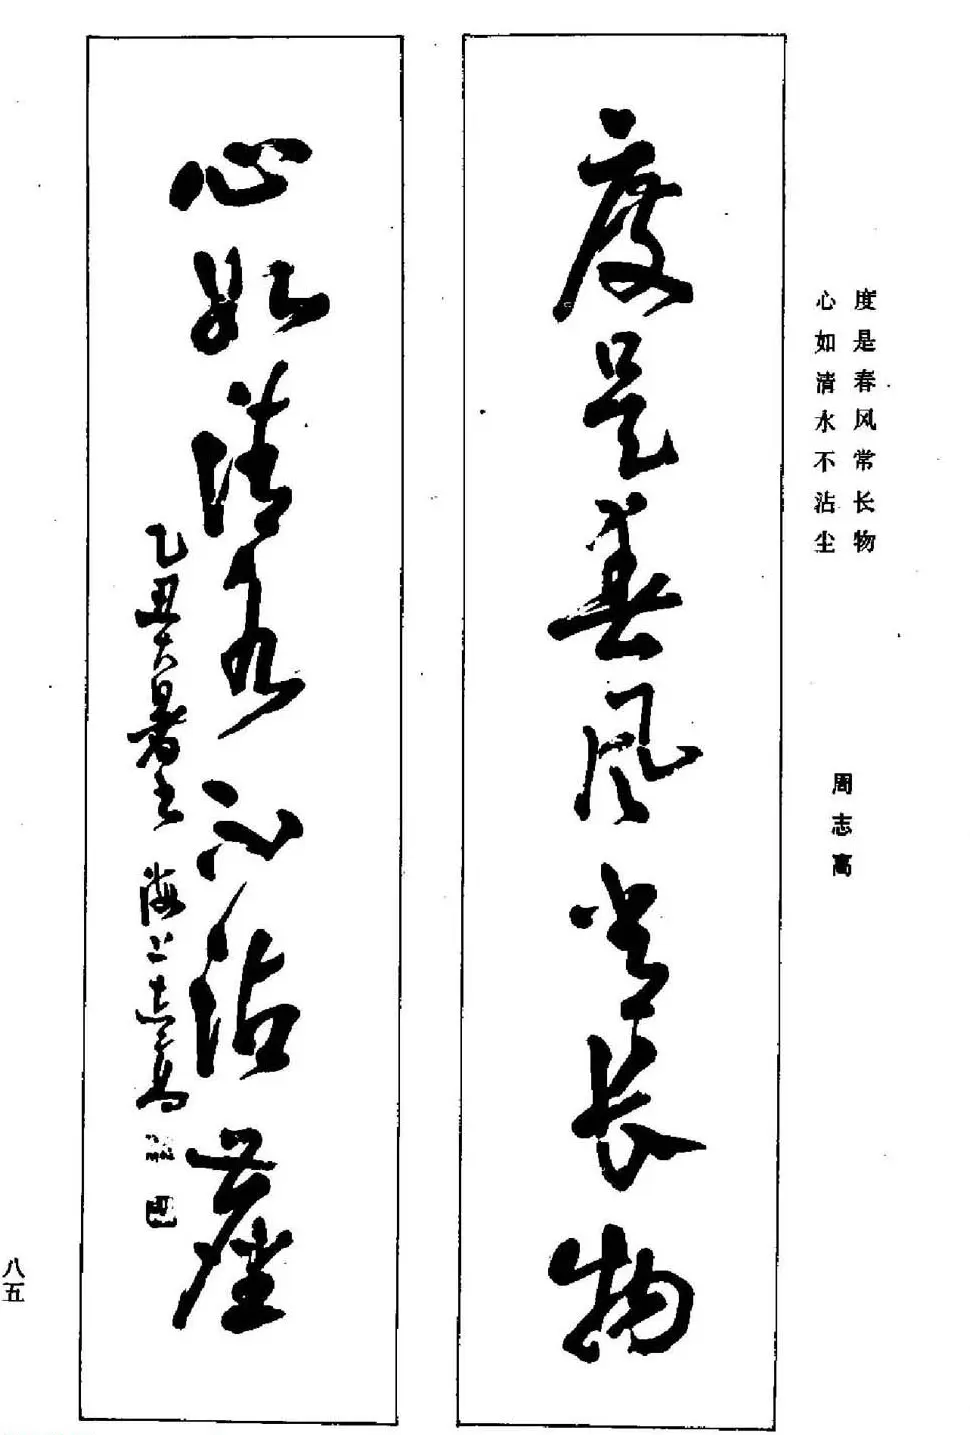 度是春风常长物
心如清水不沾尘
周志高
度是春风常长物
心如清水不沾塵
乙丑大暑
海上志高
八五